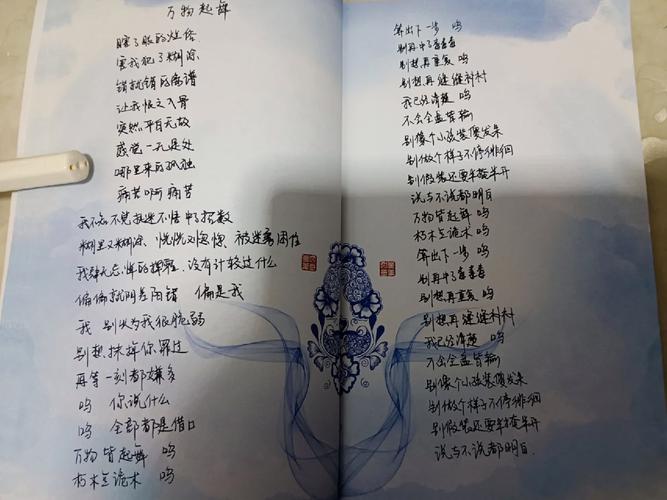 万物起舞
瞎了眼的灶
害我犯了糊涂
错就错
让我恨之入骨
突然平白无故
感觉一无是处
哪里来的孤独
痛苦啊痛苦
我不知不觉执迷不悟中了招数
糊里又糊涂 恍恍又惚惚 被迷雾困住
我肆无忌惮的挥霍 没有计较过什么
偏偏就阴差阳错 偏是我
我 别以为我很脆弱
别想抹掉你罪过
再等一刻都嫌多
呜 你说什么
呜 全部都是借口
万物皆起舞 呜
朽木亦诡术 呜
算出下一步 呜
别再中了毒毒毒
别想再重复 呜
别想再缝缝补补
我已经清楚 呜
不会全盘皆输
别像个小孩装傻发呆
别做个样子不停徘徊
别假装还要半掩半开
说与不说都明白
万物皆起舞 呜
朽木亦诡术 呜
算出下一步 呜
别再中了毒毒毒
别想再重复 呜
别想再缝缝补补
我已经清楚 呜
不会全盘皆输
别像个小孩装傻发呆
别做个样子不停徘徊
别假装还要半掩半开
说与不说都明白